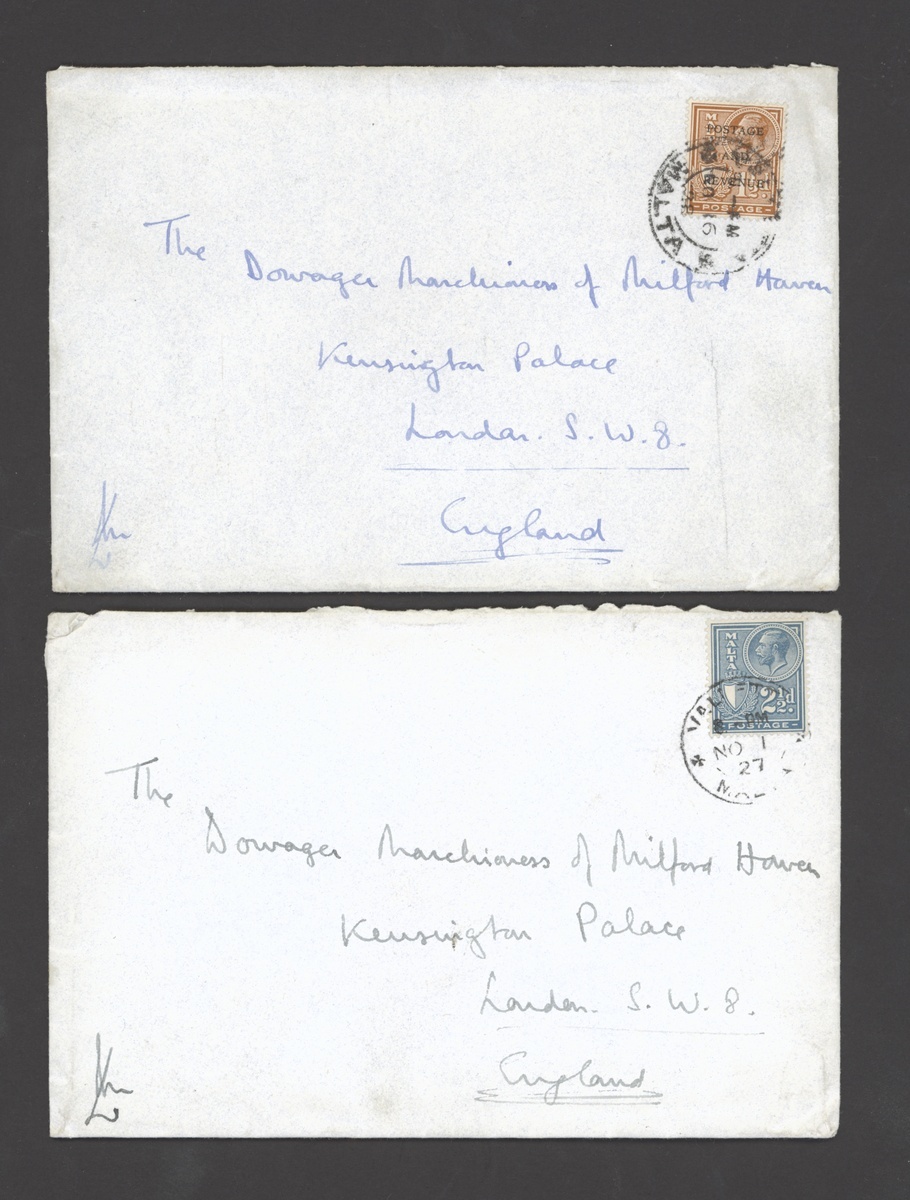 MALTA
POSTAGE
AND
REVENUE
POSTAGE
MALTA
The
Dowager Marchioness of Milford Haven
Kensington Palace
London. S. W. 8.
England
MALTA
2½d.
POSTAGE
PM
NO 1
27
The
Dowager Marchioness of Milford Haven
Kensington Palace
London. S. W. 8.
England